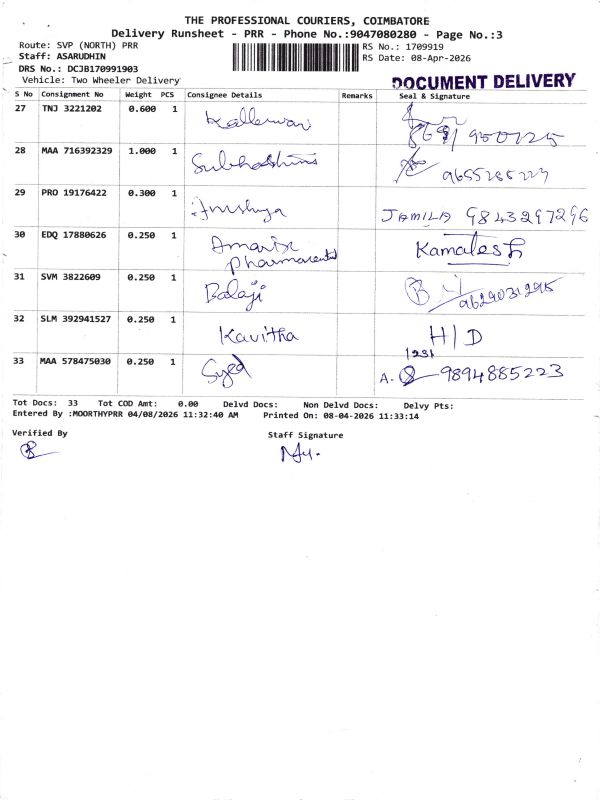 THE PROFESSIONAL COURIERS, COIMBATORE
Delivery Runsheet - PRR - Phone No.:9047080280 - Page No.:3
Route: SVP (NORTH) PRR
RS No.: 1709919
Staff: ASARUDHIN
RS Date: 08-Apr-2026
DRS No.: DCJB170991903
Vehicle: Two Wheeler Delivery
DOCUMENT DELIVERY
S No Consignment No Weight PCS Consignee Details Remarks Seal & Signature
27 TNJ 3221202 0.600 1
28 MAA 716392329 1.000 1 Subhashini
29 PRO 19176422 0.300 1 JAMILA 9843297296
30 EDQ 17880626 0.250 1 Kamalesh
31 SVM 3822609 0.250 1 Balaji
32 SLM 392941527 0.250 1 Kavitha H/D
33 MAA 578475030 0.250 1 Syed A. 9894885223
Tot Docs: 33 Tot COD Amt: 0.00 Delvd Docs: Non Delvd Docs: Delvy Pts:
Entered By :MOORTHYPRR 04/08/2026 11:32:40 AM Printed On: 08-04-2026 11:33:14
Verified By Staff Signature